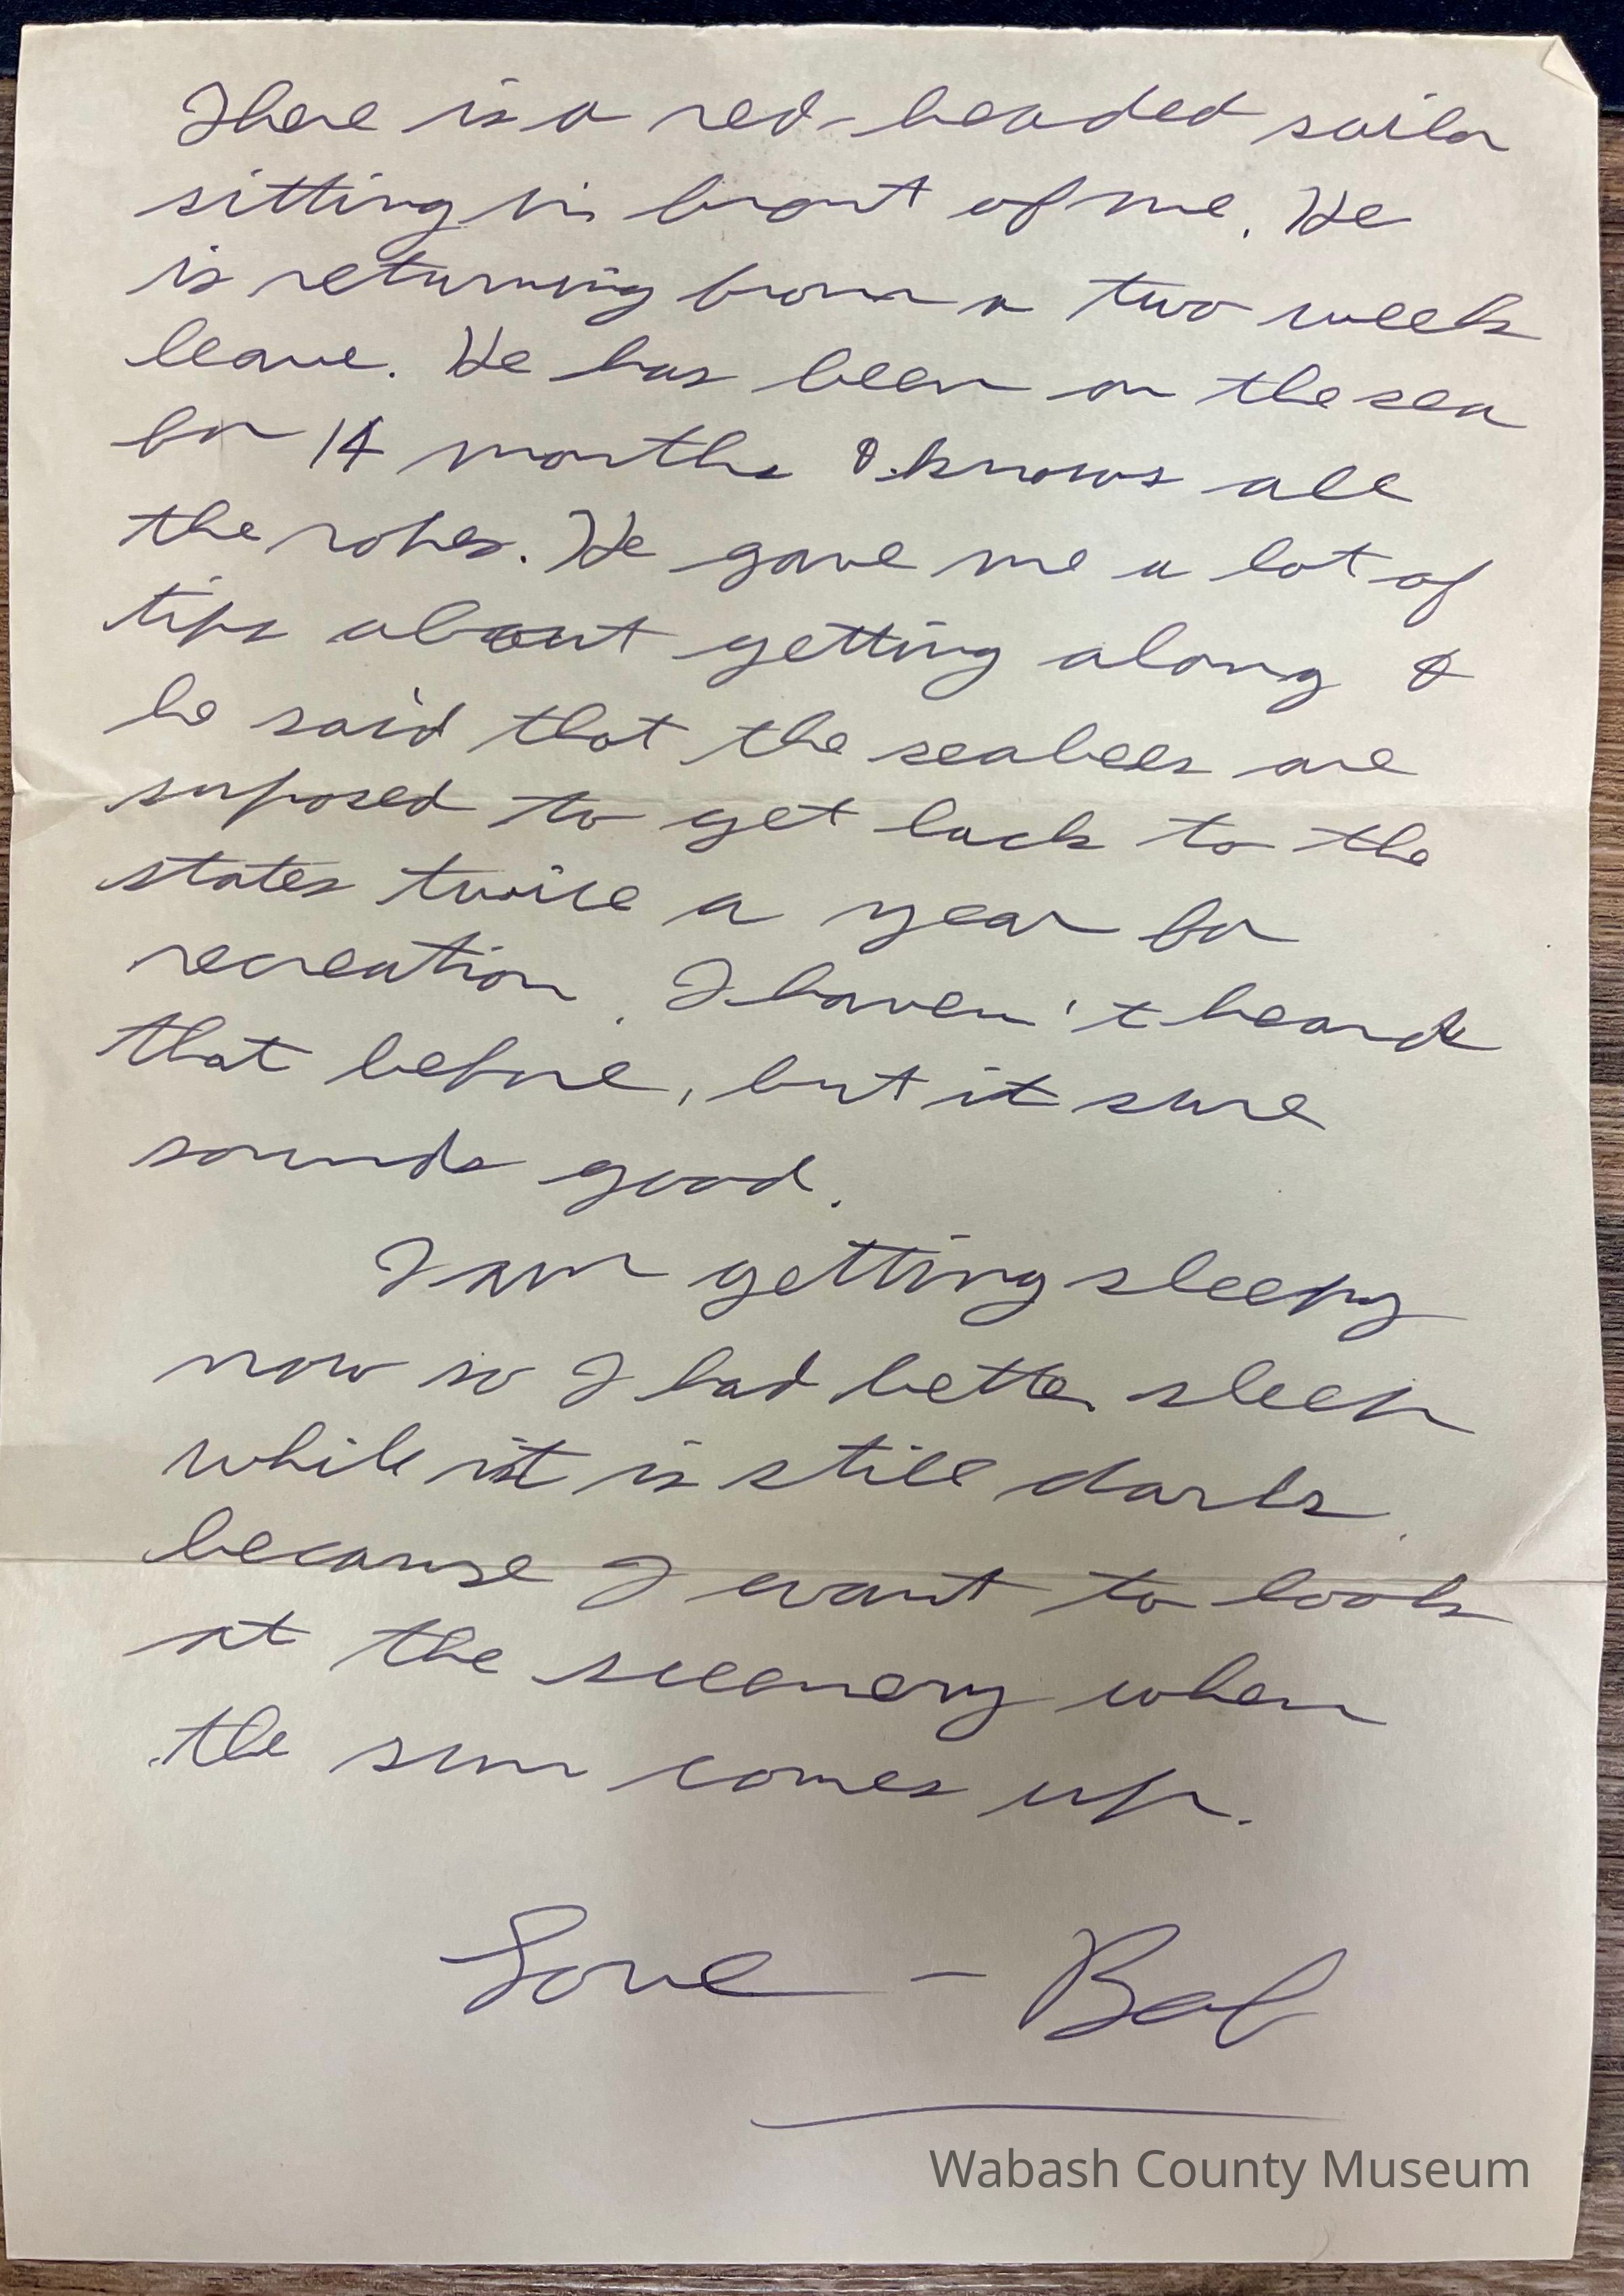 There is a red-headed sailor
sitting in front of me. He
is returning from a two week
leave. He has been on the sea
for 14 months & knows all
the ropes. He gave me a lot of
tips about getting along &
he said that the seabees are
suposed to get back to the
states twice a year for
recreation. I haven't heard
that before, but it sure
sounds good.
I am getting sleepy
now so I had better sleep
while it is still dark.
because I want to look
at the sceenery when
the sun comes up.
Love - Bob
Wabash County Museum